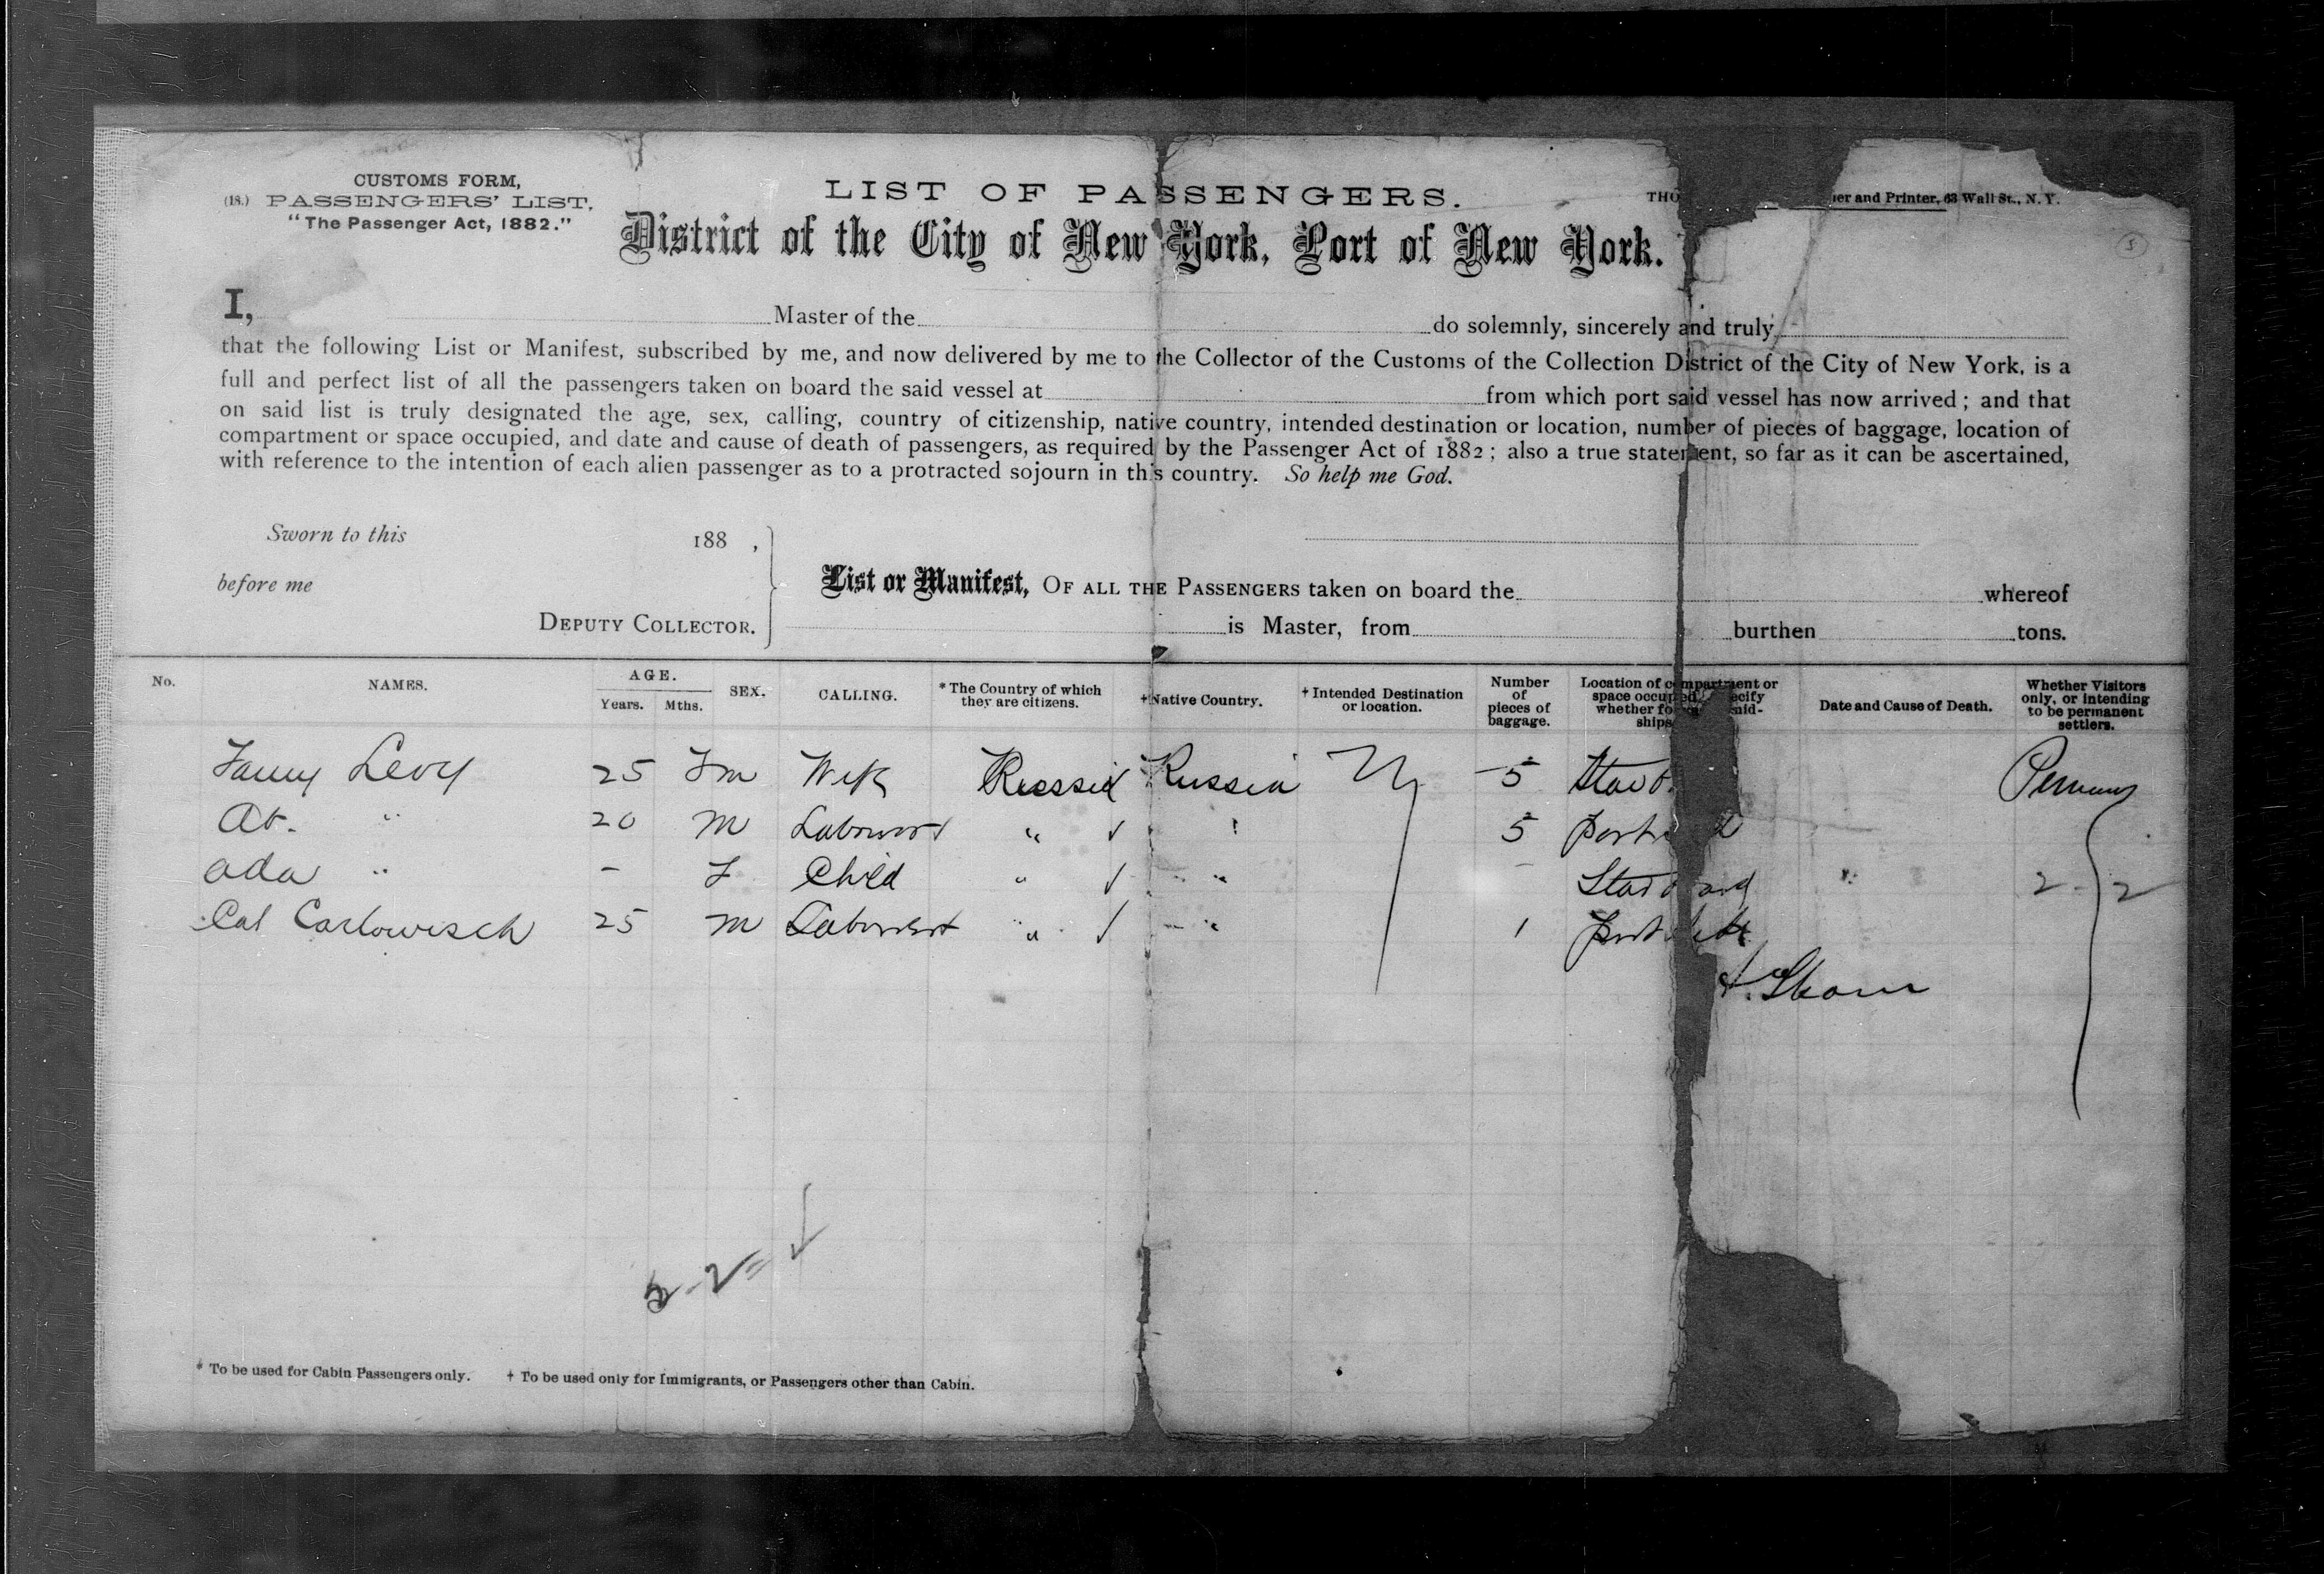 CUSTOMS FORM,
(18.) PASSENGERS' LIST,
"The Passenger Act, 1882."
LIST OF PASSENGERS.
THO er and Printer, 63 Wall St., N.Y.
District of the City of New York, Port of New York.
5
I, Master of the do solemnly, sincerely and truly
that the following List or Manifest, subscribed by me, and now delivered by me to the Collector of the Customs of the Collection District of the City of New York, is a
full and perfect list of all the passengers taken on board the said vessel at from which port said vessel has now arrived; and that
on said list is truly designated the age, sex, calling, country of citizenship, native country, intended destination or location, number of pieces of baggage, location of
compartment or space occupied, and date and cause of death of passengers, as required by the Passenger Act of 1882; also a true statement, so far as it can be ascertained,
with reference to the intention of each alien passenger as to a protracted sojourn in this country. So help me God.
Sworn to this 188 ,
before me
DEPUTY COLLECTOR.
List or Manifest, OF ALL THE PASSENGERS taken on board the whereof
is Master, from burthen tons.
No. NAMES. AGE. Years. Mths. SEX. CALLING. *The Country of which they are citizens. †Native Country. †Intended Destination or location. Number of pieces of baggage. Location of compartment or space occupied, specify whether fo mid-ships Date and Cause of Death. Whether Visitors only, or intending to be permanent settlers.
Fanny Levy 25 Fm Wife Russia Russia NY 5 Starb
Ab. " 20 M " 5 port
Ada " - F Child " " Starboard " 2 2
Cal Carlowisch 25 M " " 1 port
3-2=
* To be used for Cabin Passengers only. † To be used only for Immigrants, or Passengers other than Cabin.